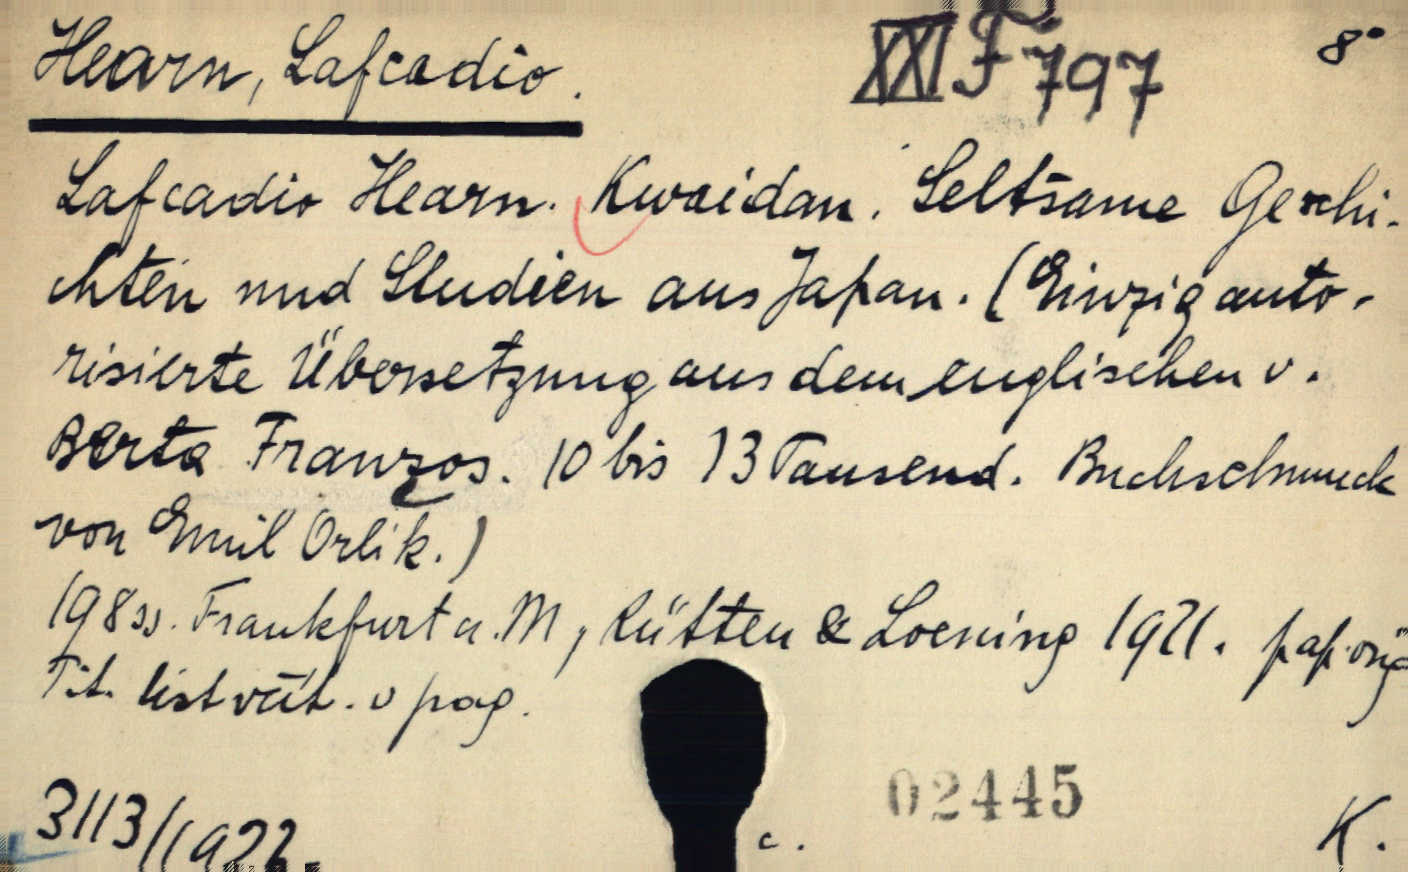 Hearn, Lafcadio. XXI F 797 8°
Lafcadio Hearn. Kwaidan. Seltsame Geschi-
chten und Studien aus Japan. (Einzig auto-
risierte Übersetzung aus dem englischen v.
Berta Franzos. 10 bis 13 Tausend. Buchschmuck
von Emil Orlik.)
198 ss. Frankfurt a. M, Rütten & Loening 1921. pap. orig
Tit. list v pag.
3113/1922.
02445
c. K.